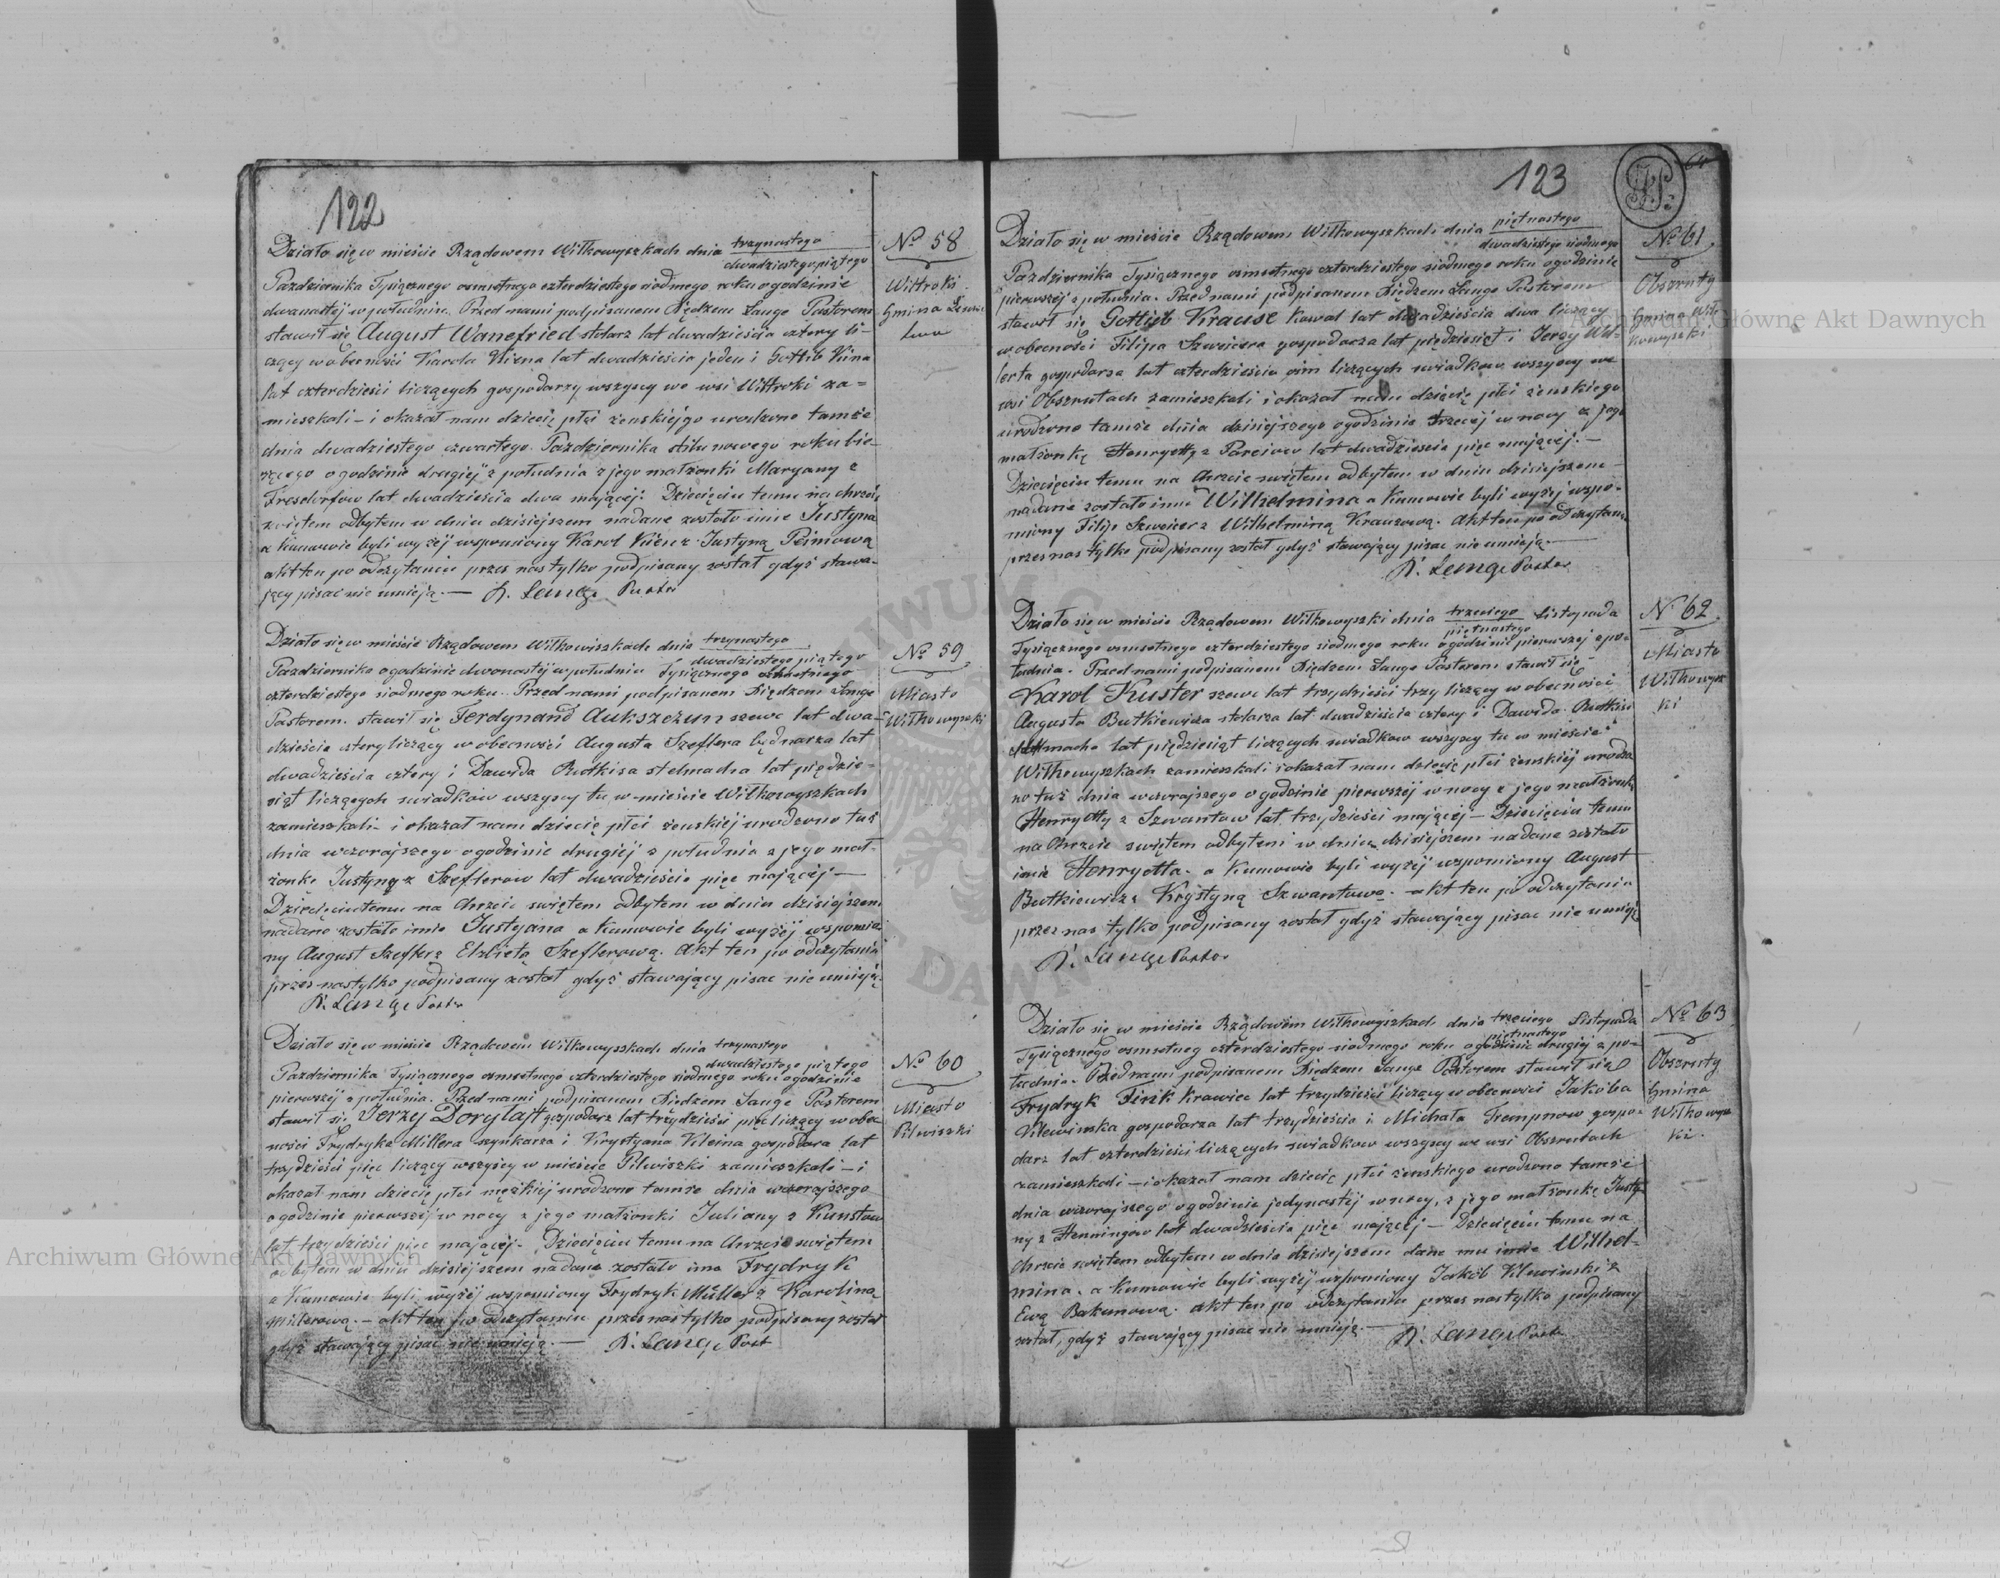 122
Działo się w mieście Rządowem Wiłkowyszkach dnia trzynastego
dwudziestego piątego
Pazdziernika Tysiącznego osmsetnego czterdziestego siodmego roku o godzinie
dwunastej w południu. Przed nami podpisanem Xiędzem Lange Pastorem
stawił się August Wanefried stolarz lat dwadzieścia cztery li-
czący w obecności Karola lat dwadzieścia jeden i Gottlib
lat czterdzieści liczących gospodarzy wszyscy we wsi Wittroki za=
mieszkali - i okazał nam dziecię płci żenskiej urodzone tamże
dnia dwudziestego czwartego Pazdziernika stilu nowego roku bie-
rzącego o godzinie drugiej z południa z jego małżonki Maryany z
lat dwadzieścia dwa mającej. Dziecięciu temu na chrzcie
świętem odbytem w dniu dzisiejszem nadane zostało imie Justyna
a kumowie byli wyżej wspomiony Karol z Justyną
akt ten po odczytaniu przez nas tylko podpisany został gdyż stawa-
jący pisac nie umieją. — Lange Pastor
No 58
Wittroki
Gmina
Działo się w mieście Rządowem Wiłkowiszkach dnia trzynastego
dwudziestego piątego
Pazdziernika o godzinie dwunastej w południu Tysiącznego osmsetnego
czterdziestego siodmego roku. Przed nami podpisanem Xiędzem Lange
Pastorem. stawił się Ferdynand Aukszczun szewc lat dwa-
dzieścia cztery liczący w obecności Augusta Szeflera bednarza lat
dwadzieścia cztery i Dawida Rutkisa stelmacha lat pięćdzie-
siąt liczących swiadków wszyscy tu w mieście Wiłkowyszkach
zamieszkali - i okazał nam dziecię płci żenskiej urodzone tuż
dnia wczorajszego o godzinie drugiej z południa z jego mał-
żonki Justyny z Szeflerow lat dwadzieścia pięc mającej —
Dziecięciu temu na chrzcie swiętem odbytem w dniu dzisiejszem
nadane zostało imie Justyana a kumowie byli wyżej wspomio-
ny August Szefler z Elzbietą Szeflerową. Akt ten po odczytaniu
przez nas tylko podpisany został gdyż stawający pisac nie umieją.
Lange Pastor
No 59
Miasto
Wiłkowyszki
Działo się w mieście Rządowem Wilkowyszkach dnia trzynastego
dwudziestego piątego
Pazdziernika Tysiącznego osmsetnego czterdziestego siodmego roku o godzinie
pierwszej z południa. Przed nami podpisanem Xiędzem Lange Pastorem
stawił się Jerzy gospodarz lat trzydzieści pięc liczący w obec-
ności Frydryka Millera szynkarza i Krystyana Kleina gospodarza lat
trzydzieści pięc liczący wszyscy w mieście Pilwiszki zamieszkali - i
okazał nam dziecię płci męzkiej urodzone tamże dnia wczorajszego
o godzinie pierwszej w nocy z jego małżonki Juliany z Kunstow
lat trzydzieści pięc mającej. Dziecięciu temu na chrzcie swiętem
odbytem w dniu dzisiejszem nadane zostało imie Frydryk
a Kumowie byli wyżej wspomiony Frydryk Miller z Karoliną
Milerową. — akt ten po odczytaniu przez nas tylko podpisany został
gdyż stawający pisac nie umieją. — Lange Past
No 60
Miasto
Pilwiszki
123
Działo się w mieście Rządowem Wiłkowyszkach dnia piętnastego
dwudziestego siodmego
Pazdziernika Tysiącznego osmsetnego czterdziestego siodmego roku o godzinie
pierwszej z południa. Przed nami podpisanem Xiędzem Lange Pastorem
stawił się Gottlieb Krause kowal lat dwadzieścia dwa liczący
w obecności Filipa Szweicera gospodarza lat pięćdziesiąt i Jerzy
gospodarza lat czterdzieścia osm liczących swiadkow wszyscy we
wsi Obszrutach zamieszkali i okazał nam dziecię płci żenskiego
urodzone tamże dnia dzisiejszego o godzinie trzeciej w nocy z jego
małżonką Henryetty z lat dwadzieścia pięc mającej. —
Dziecięciu temu na Chrzcie swiętem odbytem w dniu dzisiejszem
nadane zostało imie Wilhelmina a Kumowie byli wyżej wspo-
miony Filip Szweicer z Wilhelminą Krauzową. Akt ten po odczytaniu
przez nas tylko podpisany został gdyż stawający pisac nie umieją. —
Lange Pastor
No 61
Obszruty
Gmina Wił-
kowyszki
Działo się w mieście Rządowem Wilkowyszki dnia trzeciego Listopada
piętnastego
Tysiącznego osmsetnego czterdziestego siodmego roku o godzinie pierwszej z po-
łudnia. Przed nami podpisanem Xiędzem Lange Pastorem stawił się
Karol Kuster szewc lat trzydzieści trzy liczący w obecności
Augusta Butkiewicza stolarza lat dwadzieścia cztery i Dawida
lat pięćdziesiąt liczących swiadkow wszyscy tu w mieście
Wilkowyszkach zamieszkali i okazał nam dziecię płci żenskiej urodzo-
no tuż dnia wczorajszego o godzinie pierwszej w nocy z jego małżonki
Henryetty z Szwantow lat trzydzieści mającej — Dziecięciu temu
na Chrzcie swiętem odbytem w dniu dzisiejszem nadane zostało
imie Henryetta. a Kumowie byli wyżej wspomiony August
Butkiewicz z Krystyną Szwantową. akt ten po odczytaniu
przez nas tylko podpisany został gdyż stawający pisac nie umieją
Lange Pastor
No 62
Miasto
Wiłkowysz
ki
Działo się w mieście Rządowem Wilkowyszkach dnia trzeciego Listopada
piętnastego
Tysiącznego osmsetneg czterdziestego siodmego roku o godzinie drugiej z po-
łudnia. Przed nami podpisanem Xiędzem Lange Pastorem stawił się
Frydryk Fink Krawiec lat trzydzieści liczący w obecności Jakóba
Klewinska gospodarza lat trzydzieścia i Michała gospo-
darz lat czterdzieści liczących swiadkow wszyscy we wsi Obszrutach
zamieszkali - i okazał nam dziecię płci żenskiego urodzone tamże
dnia wczorajszego o godzinie jedynastej w nocy, z jego małżonkę Justy-
ny z Henningów lat dwadzieścia pięc mającej — Dziecięciu temu na
chrzcie swiętem odbytem w dniu dzisiejszem dane mu imie Wilhel-
mina. a Kumowie byli wyżej wspomiony Jakób Klewinski z
Ewą Bakunową. akt ten po odczytaniu przez nas tylko podpisany
został, gdyż stawający pisac nie umieją. — Lange Pastor
No 63
Obszruty
Gmina
Wilkowysz
ki.
Archiwum Główne Akt Dawnych
Archiwum Główne Akt Dawnych